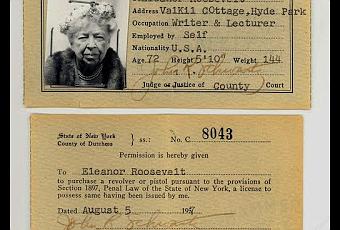 Eleanor Roosevelt
Address Valkil Cottage, Hyde Park
Occupation Writer & Lecturer
Employed by Self
Nationality U.S.A.
Age 72 Height 5'10" Weight 144
Judge or Justice of County Court
State of New York
County of Dutchess } ss.: No. C 8043
Permission is hereby given
To Eleanor Roosevelt
to purchase a revolver or pistol pursuant to the provisions of
Section 1897, Penal Law of the State of New York, a license to
possess same having been issued by me.
Dated August 5 195